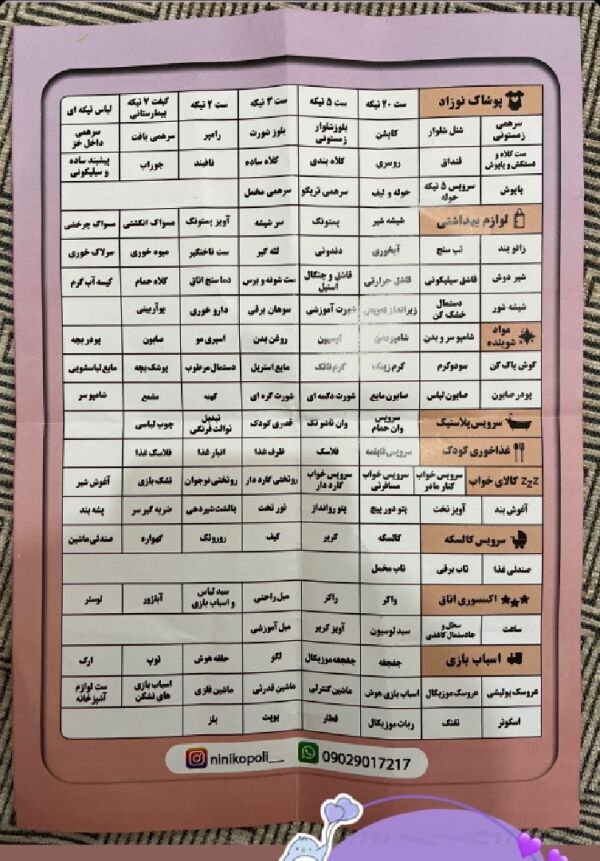 پوشاک نوزاد ست ۲۰ تیکه ست ۵ تیکه ست ۳ تیکه ست ۲ تیکه گیفت ۷ تیکه بیمارستانی لباس تیکه ای
سرهمی زمستونی شنل شلوار کاپشن بلوزشلوار زمستونی بلوز شورت رامپر سرهمی بافت سرهمی داخل خز
ست کلاه و دستکش و پاپوش قنداق روسری کلاه بندی کلاه ساده نافبند جوراب پیشبند ساده و سیلیکونی
پاپوش سرویس ۵ تیکه حوله حوله و لیف سرهمی تریکو سرهمی مخمل
لوازم بهداشتی شیشه شیر پستونک سر شیشه آویز پستونک مسواک انگشتی مسواک چرخشی
زانو بند تب سنج آبخوری دندونی لثه گیر ست ناخنگیر میوه خوری سرلاک خوری
شیر دوش قاشق سیلیکونی قاشق حرارتی قاشق و چنگال استیل ست شونه و برس دما سنج اتاق کلاه حمام کیسه آب گرم
شیشه شور دستمال خشک کن زیرانداز تعویض شورت آموزشی سوهان برقی دارو خوری پوآربینی
مواد شوینده شامپو سر و بدن شامپو بدن روغن بدن اسپری مو صابون پودر بچه
گوش پاک کن سودوکرم کرم زینک مایع استریل دستمال مرطوب پوشک بچه مایع لباسشویی
پودر صابون صابون لباس صابون مایع شورت دکمه ای شورت گره ای کهنه مشمع شامپو سر
سرویس پلاستیک سرویس وان حمام وان تاشو تک قصری کودک تبدیل توالت فرنگی چوب لباسی
غذاخوری کودک سرویس قابلمه فلاسک ظرف غذا انبار غذا فلاسک غذا
zzZ کالای خواب سرویس خواب کنار مادر سرویس خواب مسافرتی سرویس خواب گارد دار روتختی گارد دار روتختی نوجوان تشک بازی آغوش شیر
آغوش بند آویز تخت پتو دور پیچ پتو روانداز تور تخت بالشت شیردهی ضربه گیر سر پشه بند
سرویس کالسکه کالسکه کریر کیف روروئک گهواره صندلی ماشین
صندلی غذا تاب برقی تاب مخمل
اکسسوری اتاق واکر راکر مبل راحتی سبد لباس و اسباب بازی آباژور لوستر
ساعت سطل و جادستمال کاغذی سبد لوسیون آویز کریر مبل آموزشی
اسباب بازی جغجغه جغجغه موزیکال لگو حلقه هوش توپ ارگ
عروسک پولیشی عروسک موزیکال اسباب بازی هوش ماشین کنترلی ماشین قدرتی ماشین فلزی اسباب بازی های نشکن ست لوازم آشپزخانه
اسکوتر تفنگ ربات موزیکال قطار پوپت پازل
ninikopoli__ 09029017217